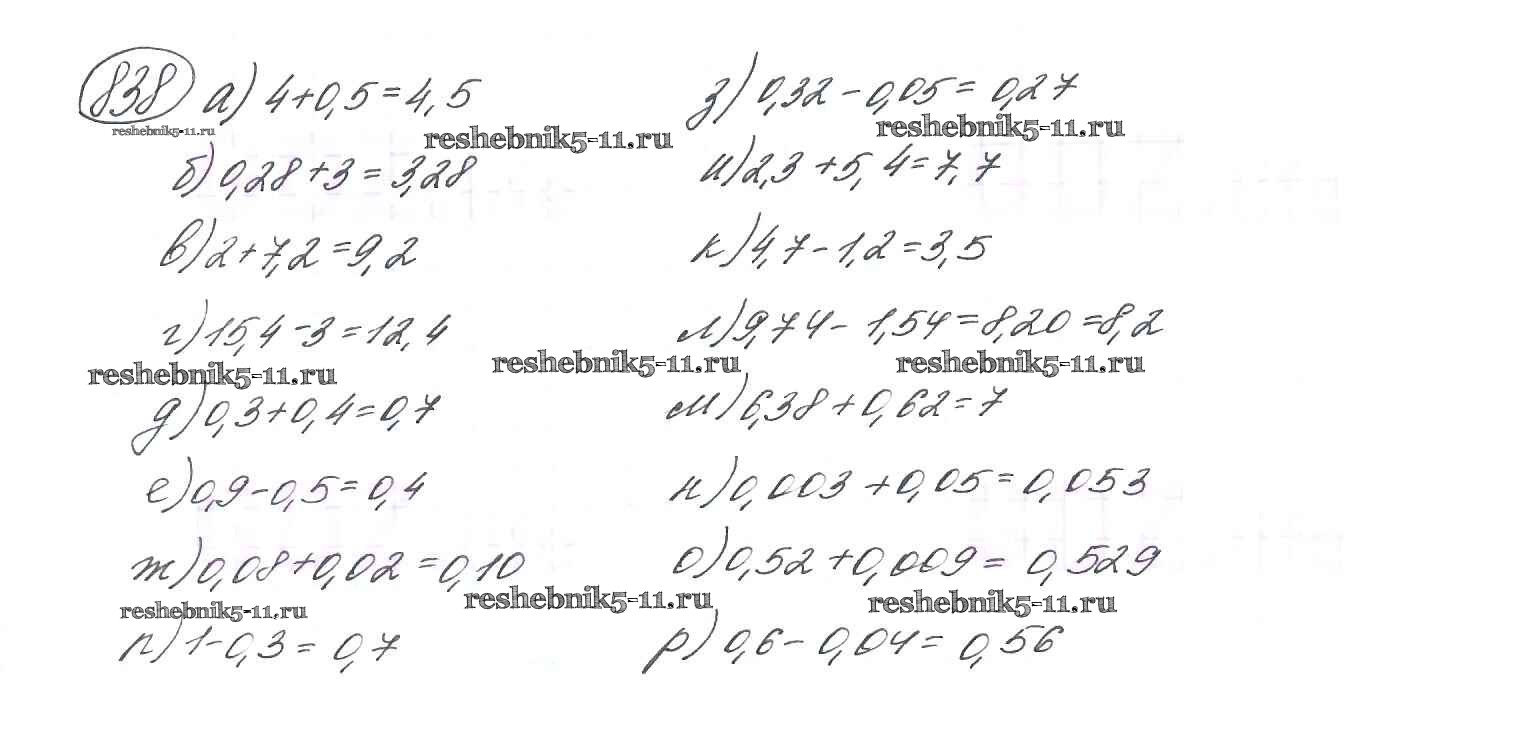 838 а) 4+0,5=4,5
reshebnik5-11.ru
reshebnik5-11.ru
б) 0,28+3=3,28
в) 2+7,2=9,2
г) 15,4-3=12,4
reshebnik5-11.ru
д) 0,3+0,4=0,7
е) 0,9-0,5=0,4
ж) 0,08+0,02=0,10
reshebnik5-11.ru
reshebnik5-11.ru
п) 1-0,3=0,7
з) 0,32-0,05=0,27
reshebnik5-11.ru
и) 2,3+5,4=7,7
к) 4,7-1,2=3,5
л) 9,74-1,54=8,20=8,2
reshebnik5-11.ru
reshebnik5-11.ru
м) 6,38+0,62=7
н) 0,003+0,05=0,053
о) 0,52+0,009=0,529
reshebnik5-11.ru
р) 0,6-0,04=0,56